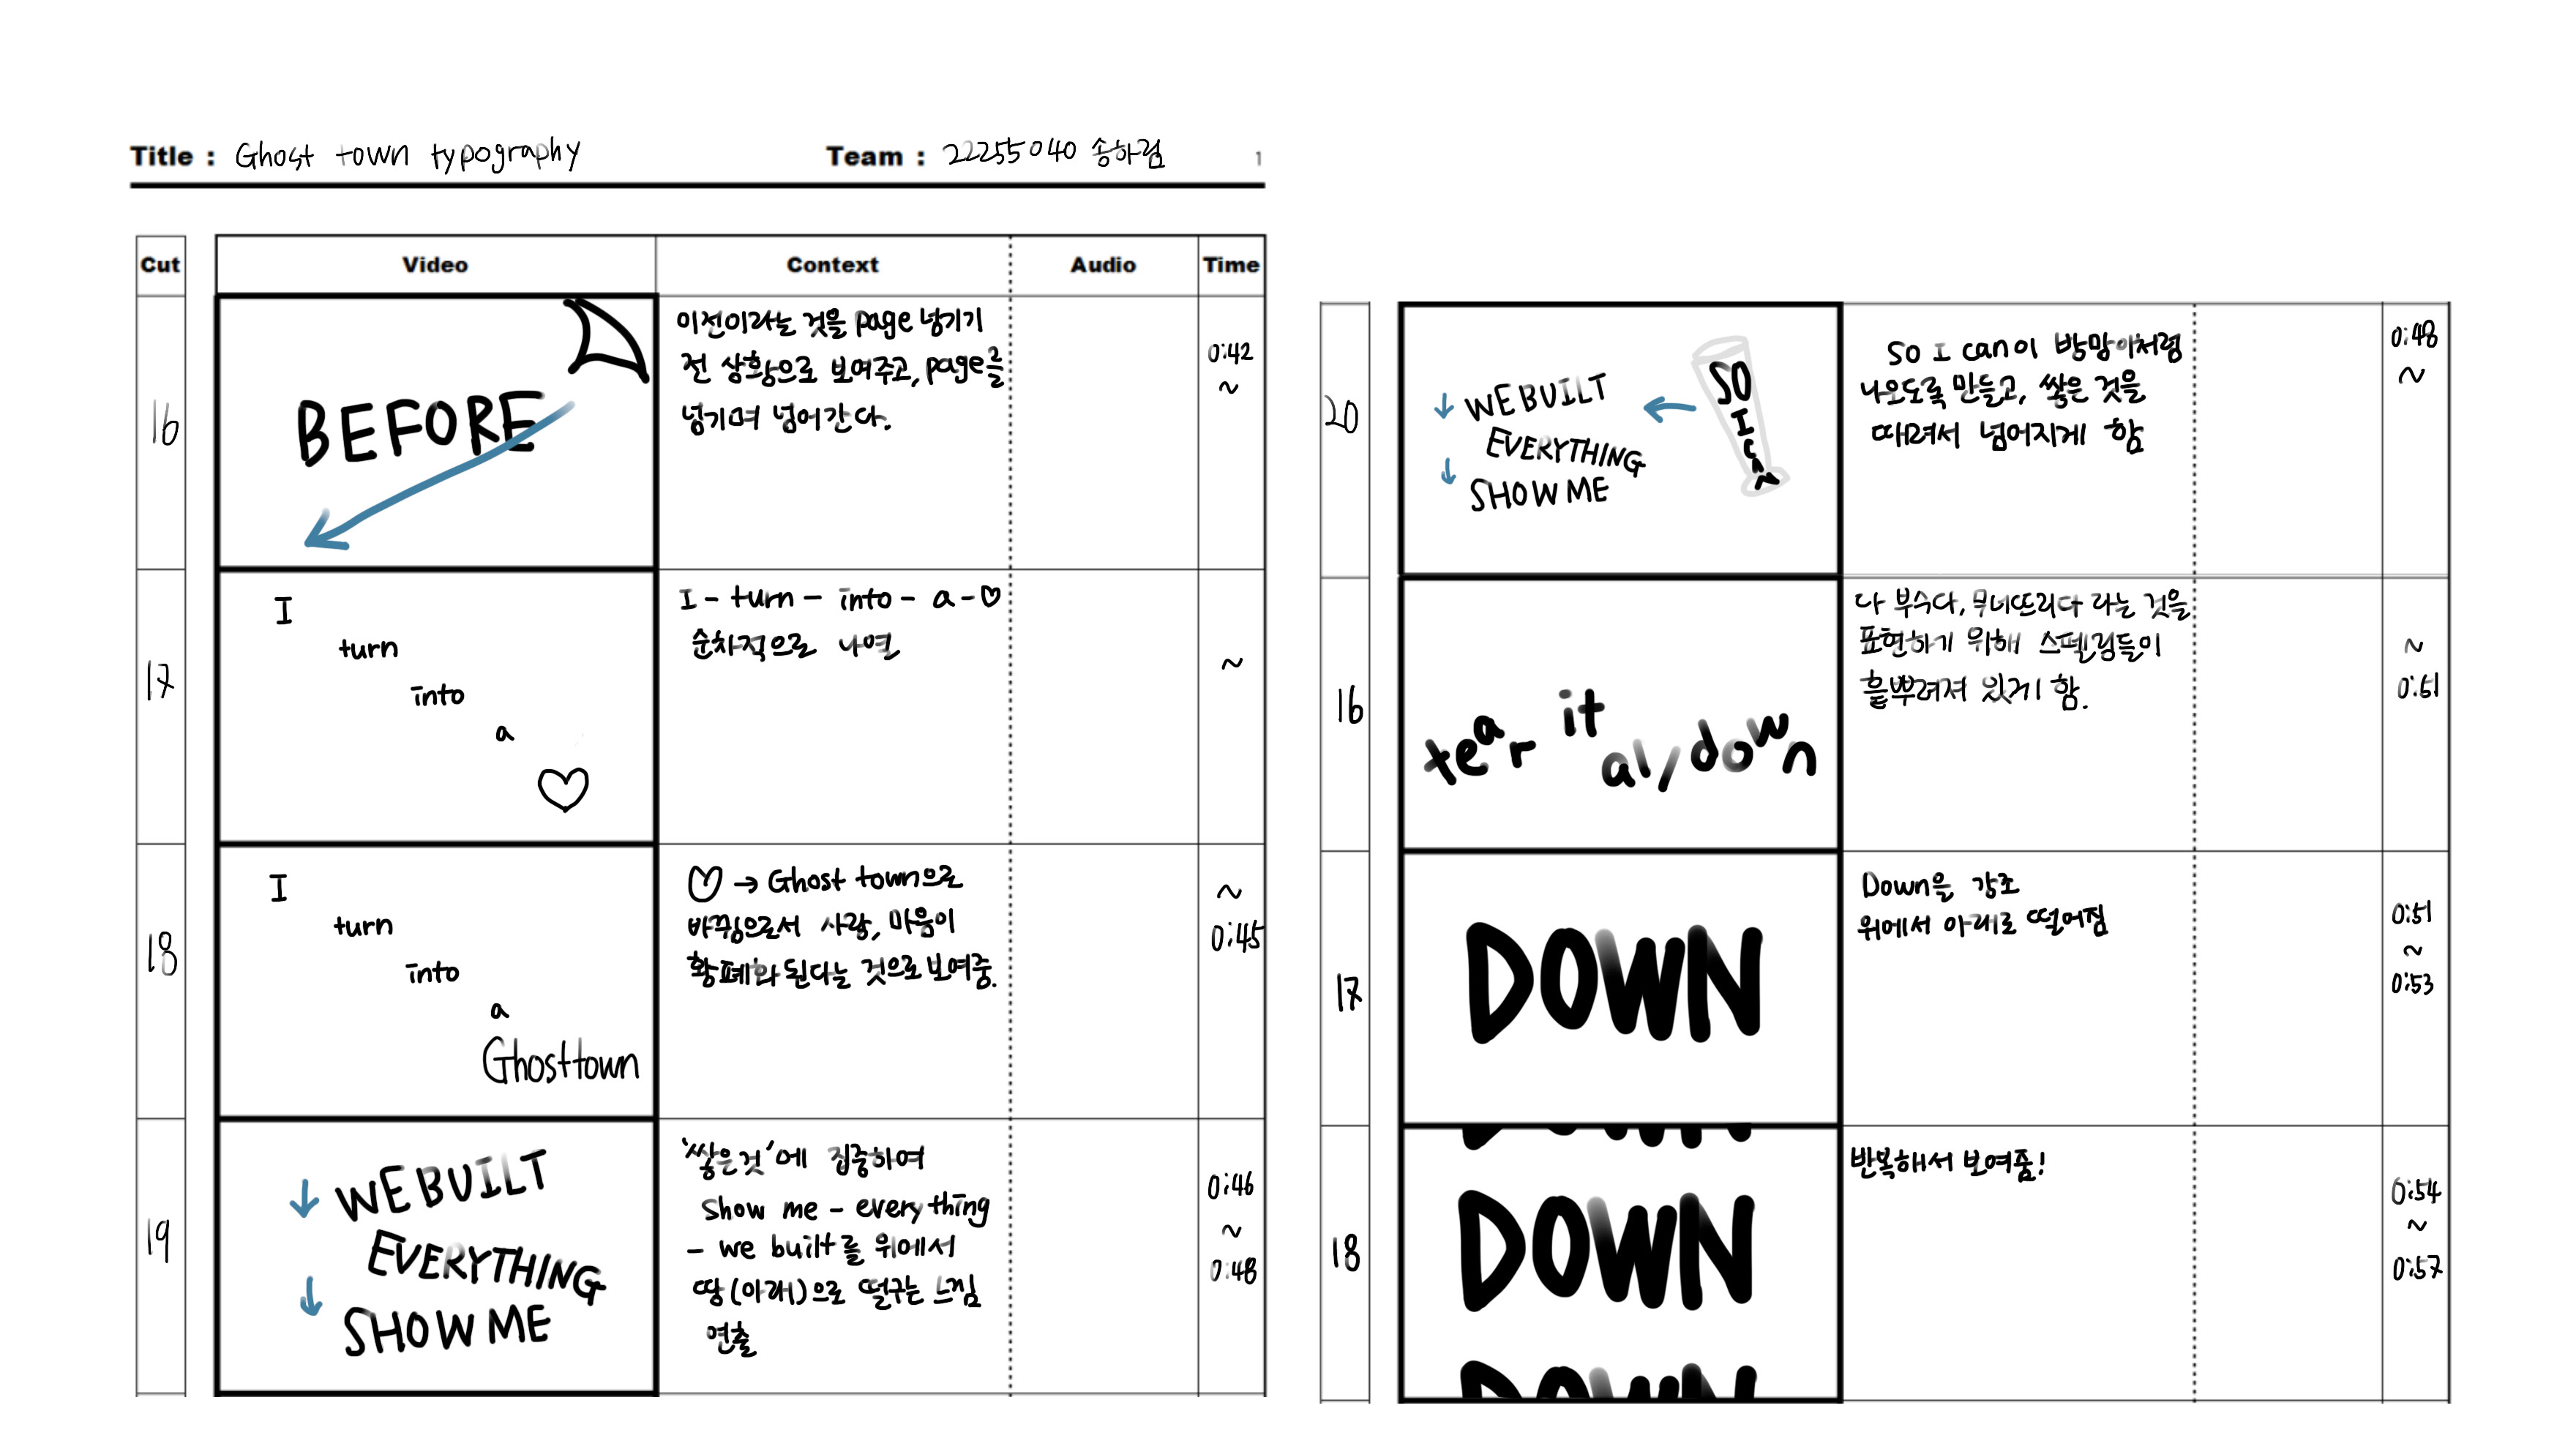 Title : Ghost town typography
Team : 22255040 송하림
1
Cut Video Context Audio Time
16
BEFORE
이전이라는 것을 page 넘기기
전 상황으로 보여주고, page를
넘기며 넘어간다.
0:42
~
17
I
turn
into
a
♡
I - turn - into - a - ♡
순차적으로 나열
~
18
I
turn
into
a
Ghosttown
♡ → Ghost town으로
바뀜으로서 사랑, 마음이
황폐화 된다는 것으로 보여줌.
~
0:45
19
↓ WE BUILT
EVERYTHING
↓ SHOW ME
'쌓은것'에 집중하여
Show me - every thing
- we built를 위에서
땅(아래)으로 떨구는 느낌
연출
0:46
~
0:48
20
↓ WE BUILT
EVERYTHING
↓ SHOW ME
←
SO I CAN
So I can이 방망이처럼
나오도록 만들고, 쌓은 것을
때려서 넘어지게 함
0:48
~
16
tear it all down
다 부수다, 무너뜨리다 라는 것을
표현하기 위해 스펠링들이
흩뿌려져 있게 함.
~
0:51
17
DOWN
Down을 강조
위에서 아래로 떨어짐
0:51
~
0:53
18
DOWN
DOWN
DOWN
반복해서 보여줌!
0:54
~
0:57